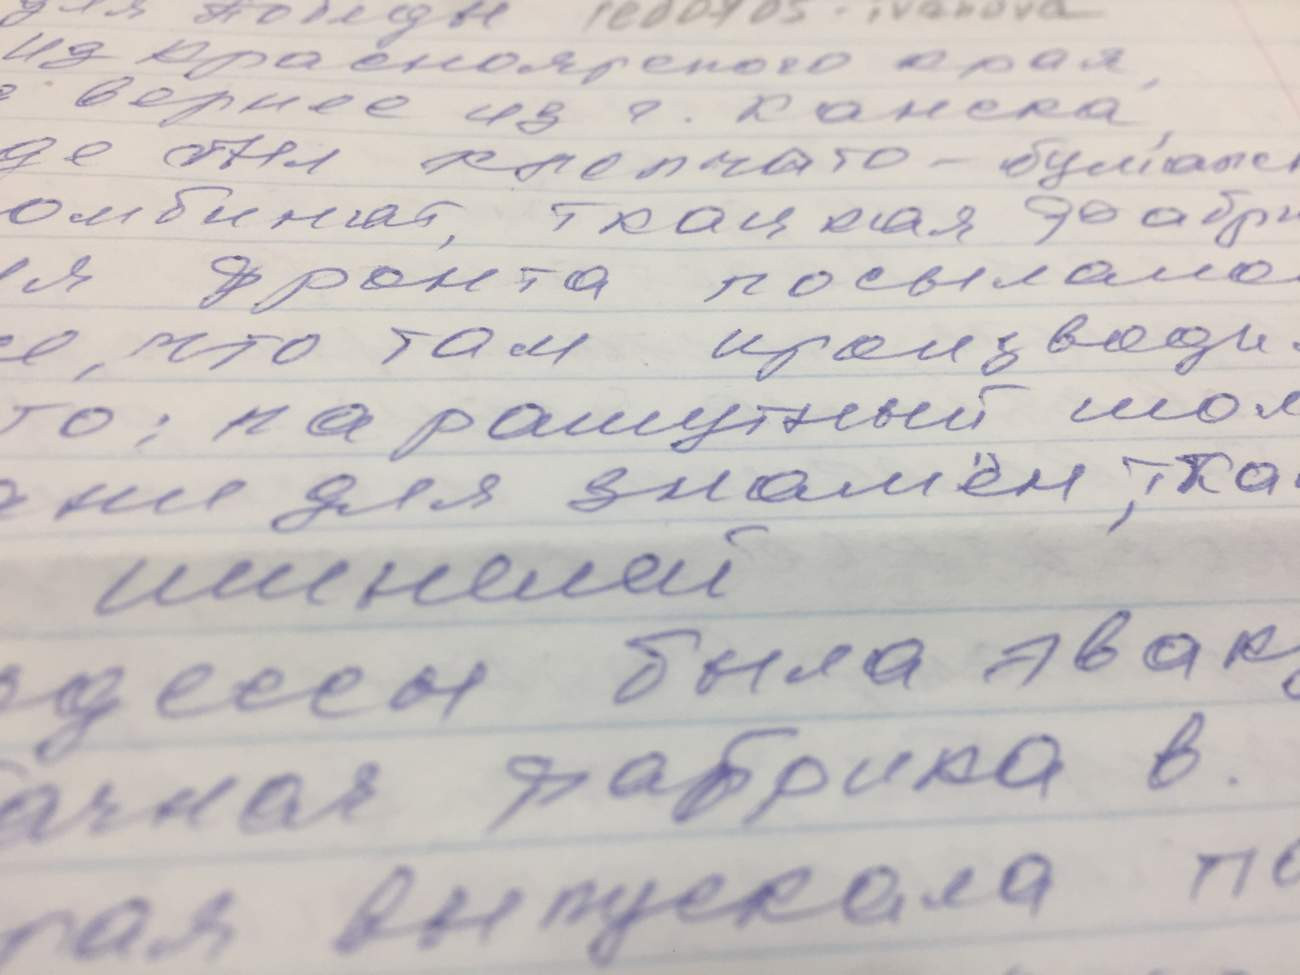 для победы red0705.ivanova
из красноярского края,
вернее из г. Канска,
где был хлопчато-бумажн
омбинат, ткацкая фабри
ля фронта посылалось
се, что там производи
то: парашутный шол
ани для знамён, тка
шинелей
одессы была эваку
ачная фабрика в.
рая выпускала по